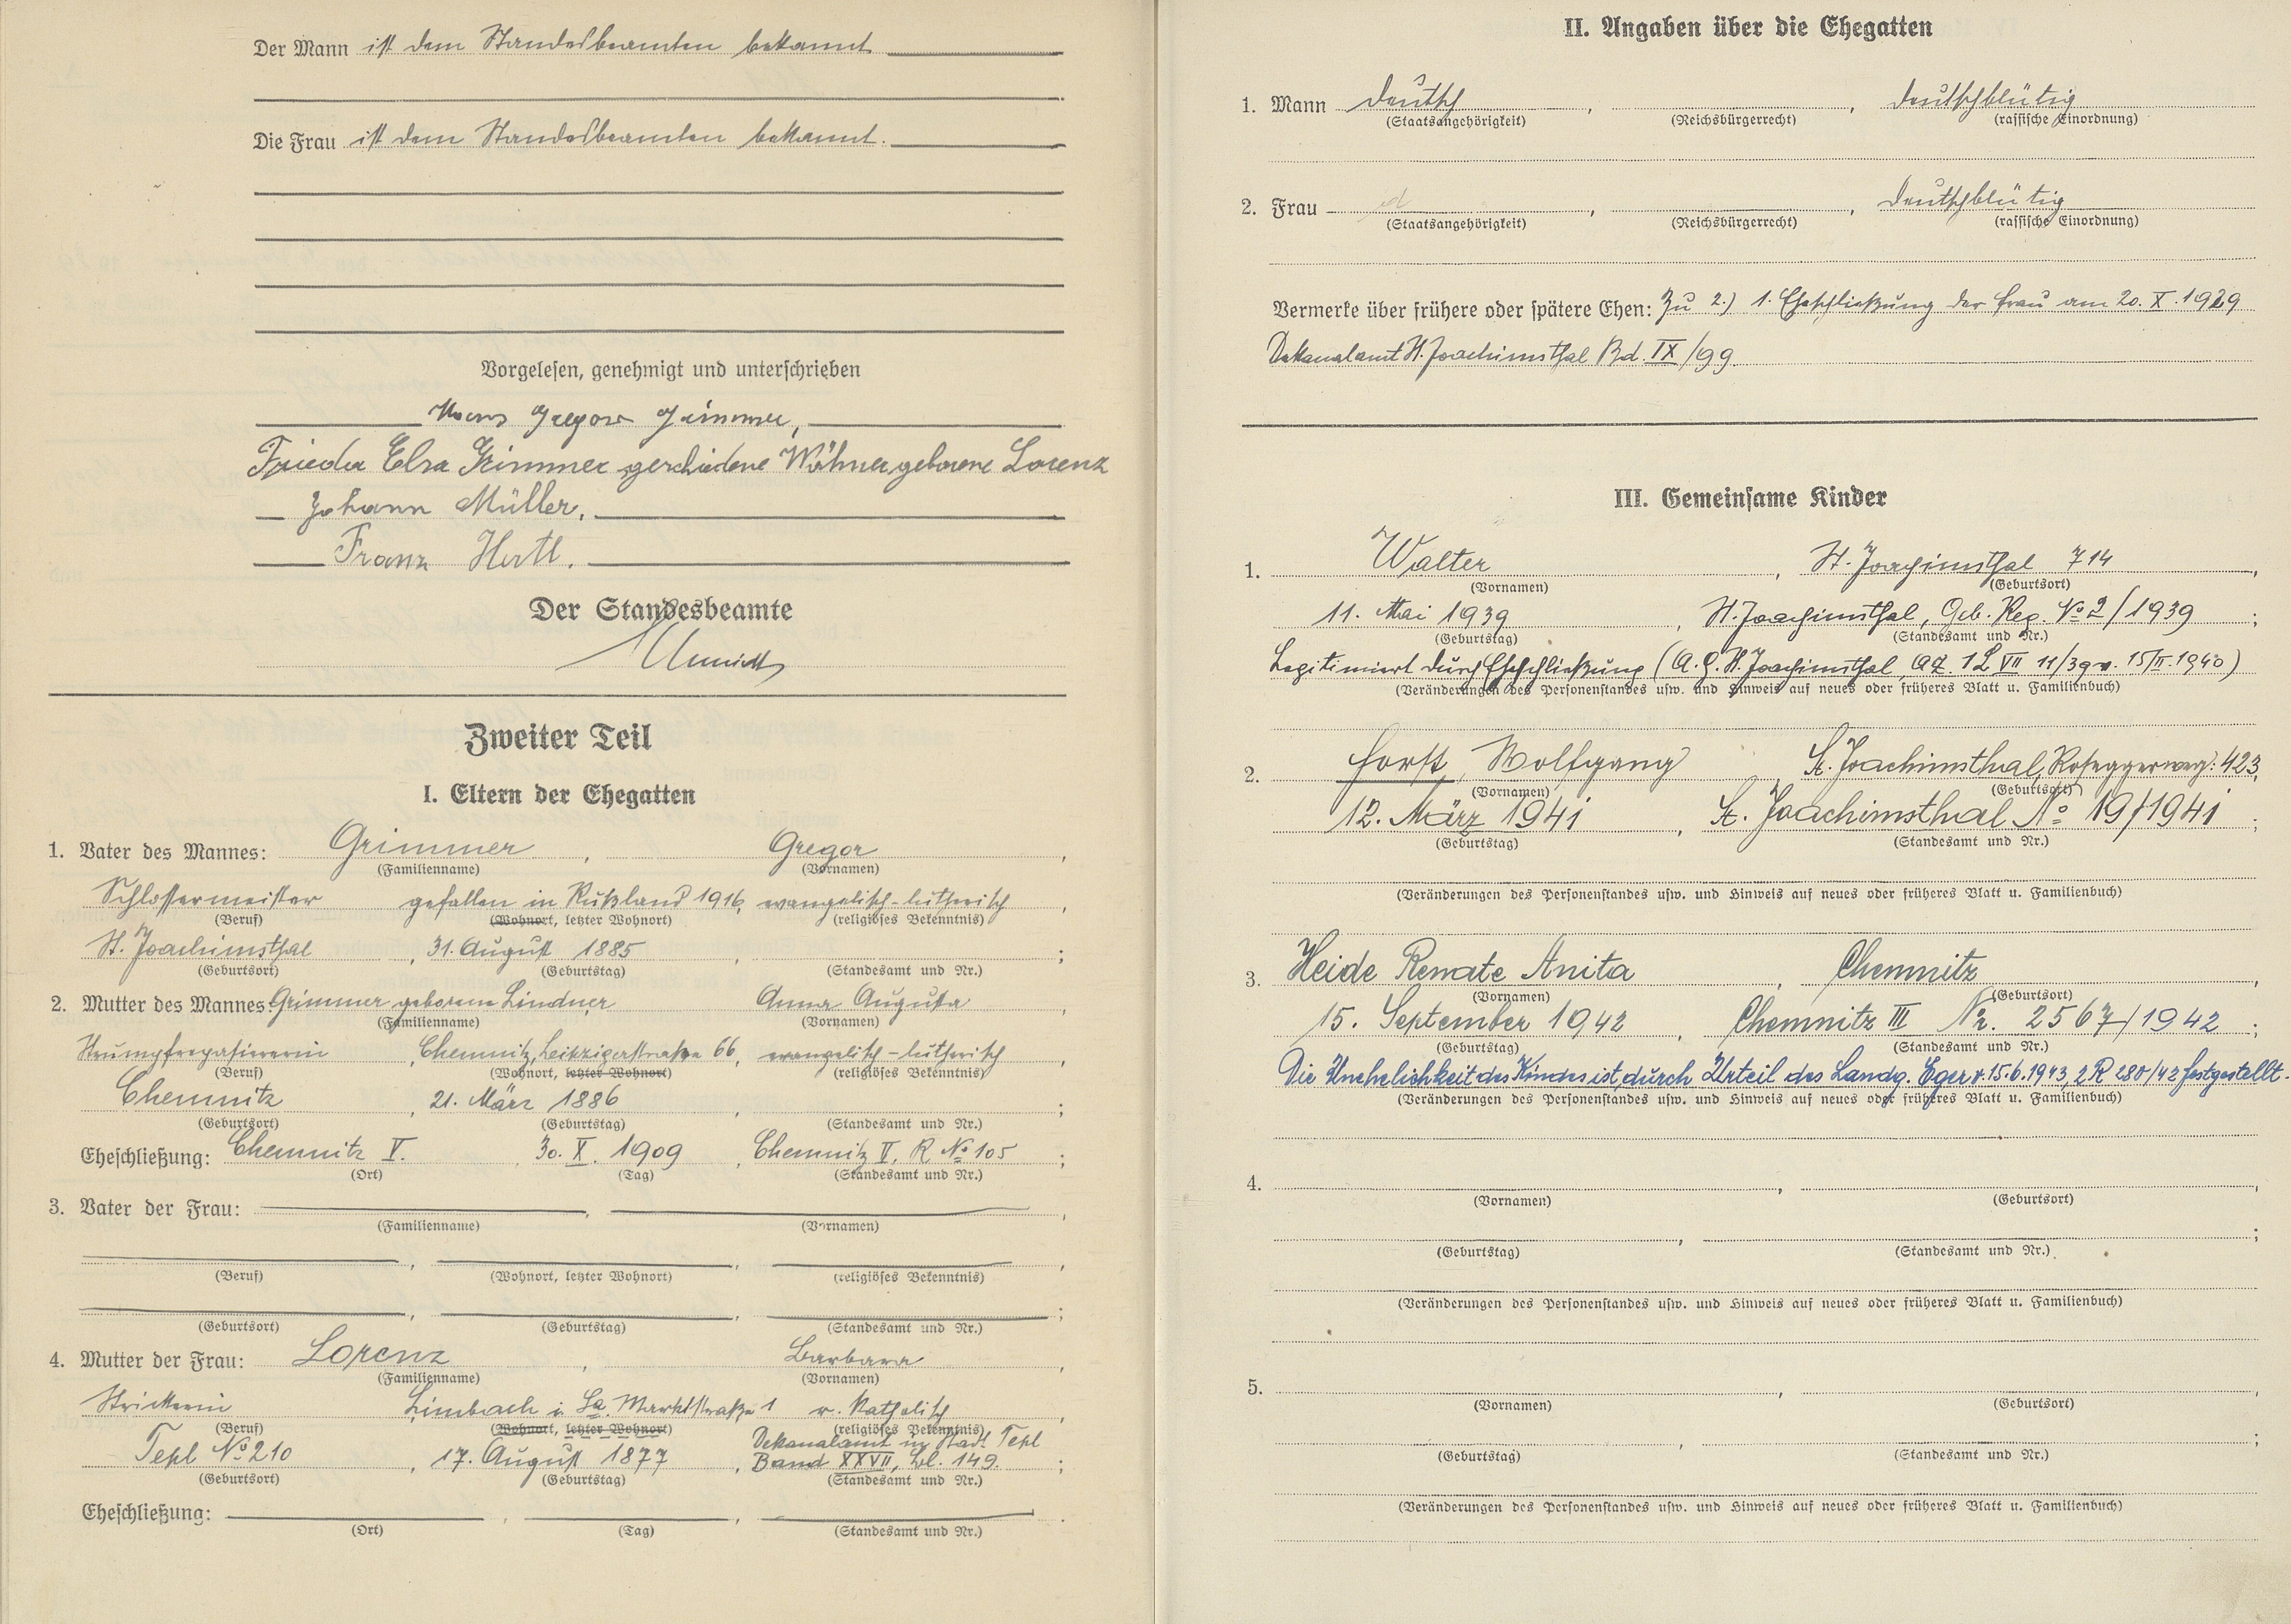 Der Mann ist dem Standesbeamten bekannt
Die Frau ist dem Standesbeamten bekannt.
Vorgelesen, genehmigt und unterschrieben
Gregor Grimmer,
Frieda Elsa Grimmer geschiedene Wöhner geborene Lorenz
Johann Müller.
Franz Hertl.
Der Standesbeamte
Zweiter Teil
I. Eltern der Ehegatten
1. Vater des Mannes: Grimmer, Gregor,
(Familienname) (Vornamen)
Schlossermeister gefallen in Rußland 1916, evangelisch-lutherisch,
(Beruf) (Wohnort, letzter Wohnort) (religiöses Bekenntnis)
St. Joachimsthal, 31. August 1885, ;
(Geburtsort) (Geburtstag) (Standesamt und Nr.)
2. Mutter des Mannes: Grimmer geborene Lindner Anna Augusta,
(Familienname) (Vornamen)
Strumpfrepasiererin, Chemnitz, Leipzigerstraße 66, evangelisch-lutherisch,
(Beruf) (Wohnort, letzter Wohnort) (religiöses Bekenntnis)
Chemnitz, 21. März 1886, ;
(Geburtsort) (Geburtstag) (Standesamt und Nr.)
Eheschließung: Chemnitz V., 30. X. 1909, Chemnitz V, R № 105;
(Ort) (Tag) (Standesamt und Nr.)
3. Vater der Frau: , ,
(Familienname) (Vornamen)
, , ,
(Beruf) (Wohnort, letzter Wohnort) (religiöses Bekenntnis)
, , ;
(Geburtsort) (Geburtstag) (Standesamt und Nr.)
4. Mutter der Frau: Lorenz, Barbara,
(Familienname) (Vornamen)
Strickerin Limbach i. Sa. Marktstraße 1 r. katholisch,
(Beruf) (Wohnort, letzter Wohnort) (religiöses Bekenntnis)
Dekanalamt in Stadt Tepl
Tepl № 210, 17. August 1877, Band XXVII, bl. 149.;
(Geburtsort) (Geburtstag) (Standesamt und Nr.)
Eheschließung: , , .
(Ort) (Tag) (Standesamt und Nr.)
II. Angaben über die Ehegatten
1. Mann deutsch, , deutschblütig
(Staatsangehörigkeit) (Reichsbürgerrecht) (rassische Einordnung)
2. Frau , , deutschblütig
(Staatsangehörigkeit) (Reichsbürgerrecht) (rassische Einordnung)
Vermerke über frühere oder spätere Ehen: Zu 2.) 1. Eheschließung der Frau am 20. X. 1929
Dekanalamt St. Joachimsthal Bd. IX/99
III. Gemeinsame Kinder
1. Walter, St. Joachimsthal 714,
(Vornamen) (Geburtsort)
11. Mai 1939, St. Joachimsthal, Geb. Reg. № 2/1939;
(Geburtstag) (Standesamt und Nr.)
Legitimiert durch Eheschließung (A. G. St. Joachimsthal, AZ 1 L VII 11/39 v. 15/II. 1940)
(Veränderungen des Personenstandes usw. und Hinweis auf neues oder früheres Blatt u. Familienbuch)
2. Horst, Wolfgang, St. Joachimsthal, Roseggerweg: 423,
(Vornamen) (Geburtsort)
12. März 1941, St. Joachimsthal № 19/1941;
(Geburtstag) (Standesamt und Nr.)
(Veränderungen des Personenstandes usw. und Hinweis auf neues oder früheres Blatt u. Familienbuch)
3. Heide Renate Anita, Chemnitz,
(Vornamen) (Geburtsort)
15. September 1942, Chemnitz III Nr. 2567/1942;
(Geburtstag) (Standesamt und Nr.)
Die Unehelichkeit des Kindes ist durch Urteil des Landg. Eger v. 15.6.1943, 2 R 280/42 festgestellt.
(Veränderungen des Personenstandes usw. und Hinweis auf neues oder früheres Blatt u. Familienbuch)
4. , ,
(Vornamen) (Geburtsort)
, ;
(Geburtstag) (Standesamt und Nr.)
(Veränderungen des Personenstandes usw. und Hinweis auf neues oder früheres Blatt u. Familienbuch)
5. , ,
(Vornamen) (Geburtsort)
, ;
(Geburtstag) (Standesamt und Nr.)
(Veränderungen des Personenstandes usw. und Hinweis auf neues oder früheres Blatt u. Familienbuch)